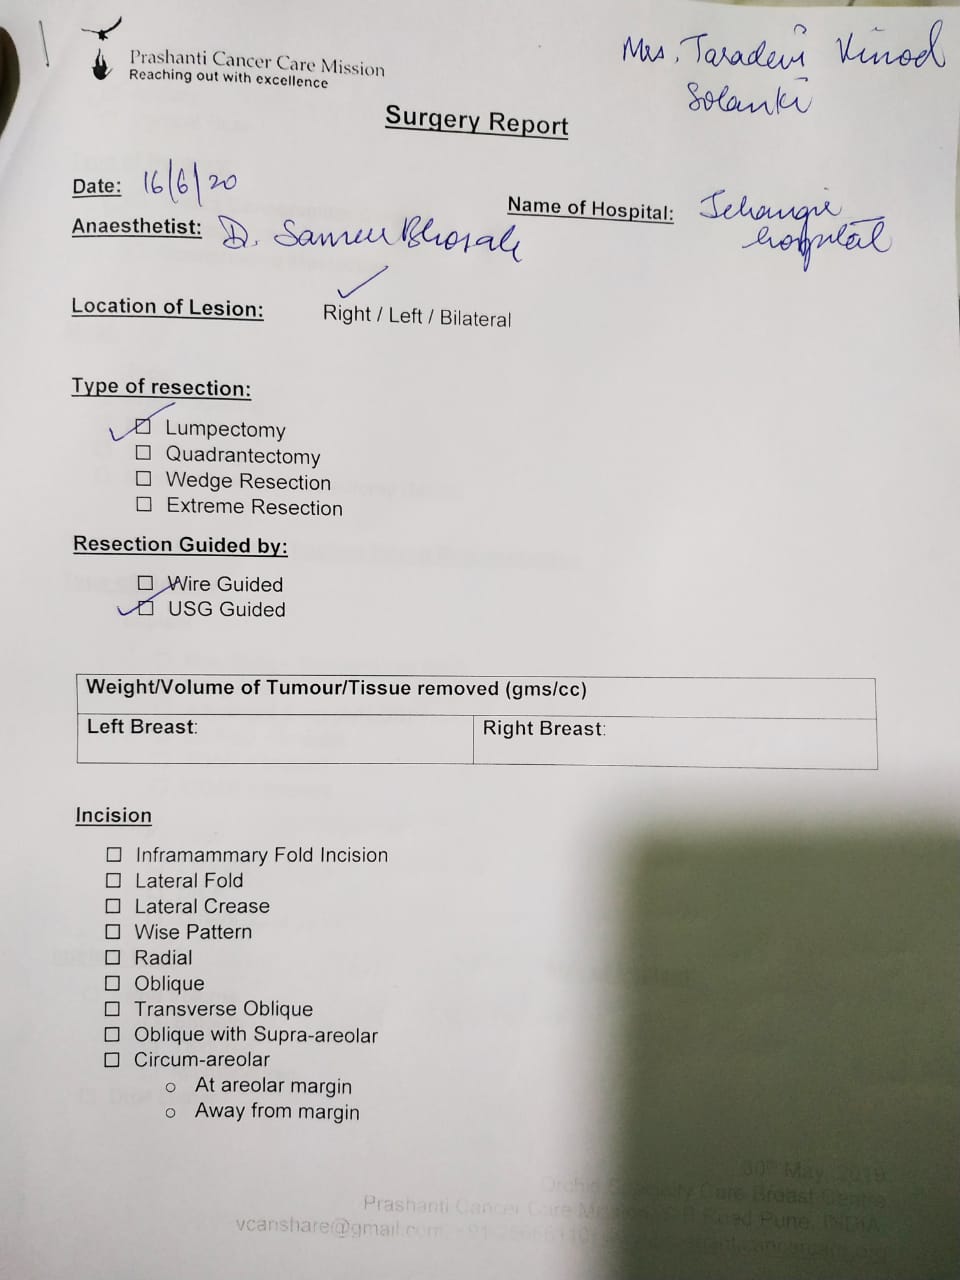 Prashanti Cancer Care Mission
Reaching out with excellence
Mrs. Taradevi Vinod
Solanki
Surgery Report
Date: 16/6/20
Name of Hospital: Jehangir
hospital
Anaesthetist: Dr. Sameer Bhosale
Location of Lesion: Right / Left / Bilateral
Type of resection:
Lumpectomy
Quadrantectomy
Wedge Resection
Extreme Resection
Resection Guided by:
Wire Guided
USG Guided
Weight/Volume of Tumour/Tissue removed (gms/cc)
Left Breast: Right Breast:
Incision
Inframammary Fold Incision
Lateral Fold
Lateral Crease
Wise Pattern
Radial
Oblique
Transverse Oblique
Oblique with Supra-areolar
Circum-areolar
o At areolar margin
o Away from margin
30th May, 2019
Care Breast Centre
Prashanti Cancer Care Road Pune, INDIA
vcanshare@gmail.com